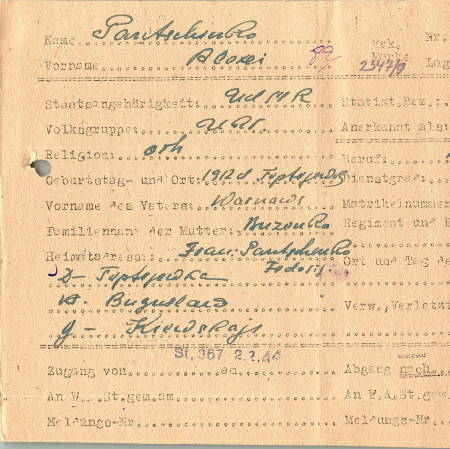 Name Pantschenko Erk. Nr.
Vorname Alexei 82 Marke 2547/9 Lag
Staatsangehörigkeit: UdSSR Statist.Bez.:
Volksgruppe: Ukr. Anerkannt als:
Religion: orth Beruf:
Geburtstag- und Ort: 1912 d Teptejewka Dienstgrad:
Vorname des Vaters: Warnawa Matrikelnummer
Familienname der Mutter: Buzenko Regiment und E
Heimatadresse: Frau: Pantschenko Ort und Tag de
Fedosij
D- Teptejewka
R- Boguslaw Verw., Verletzt
g- Kiewskaja
St. 367 2.2.44
Zugang von am Abgang nach
An W.A.St.gem.am An W.A.St.gem.
Meldungs-Nr Meldungs-Nr.